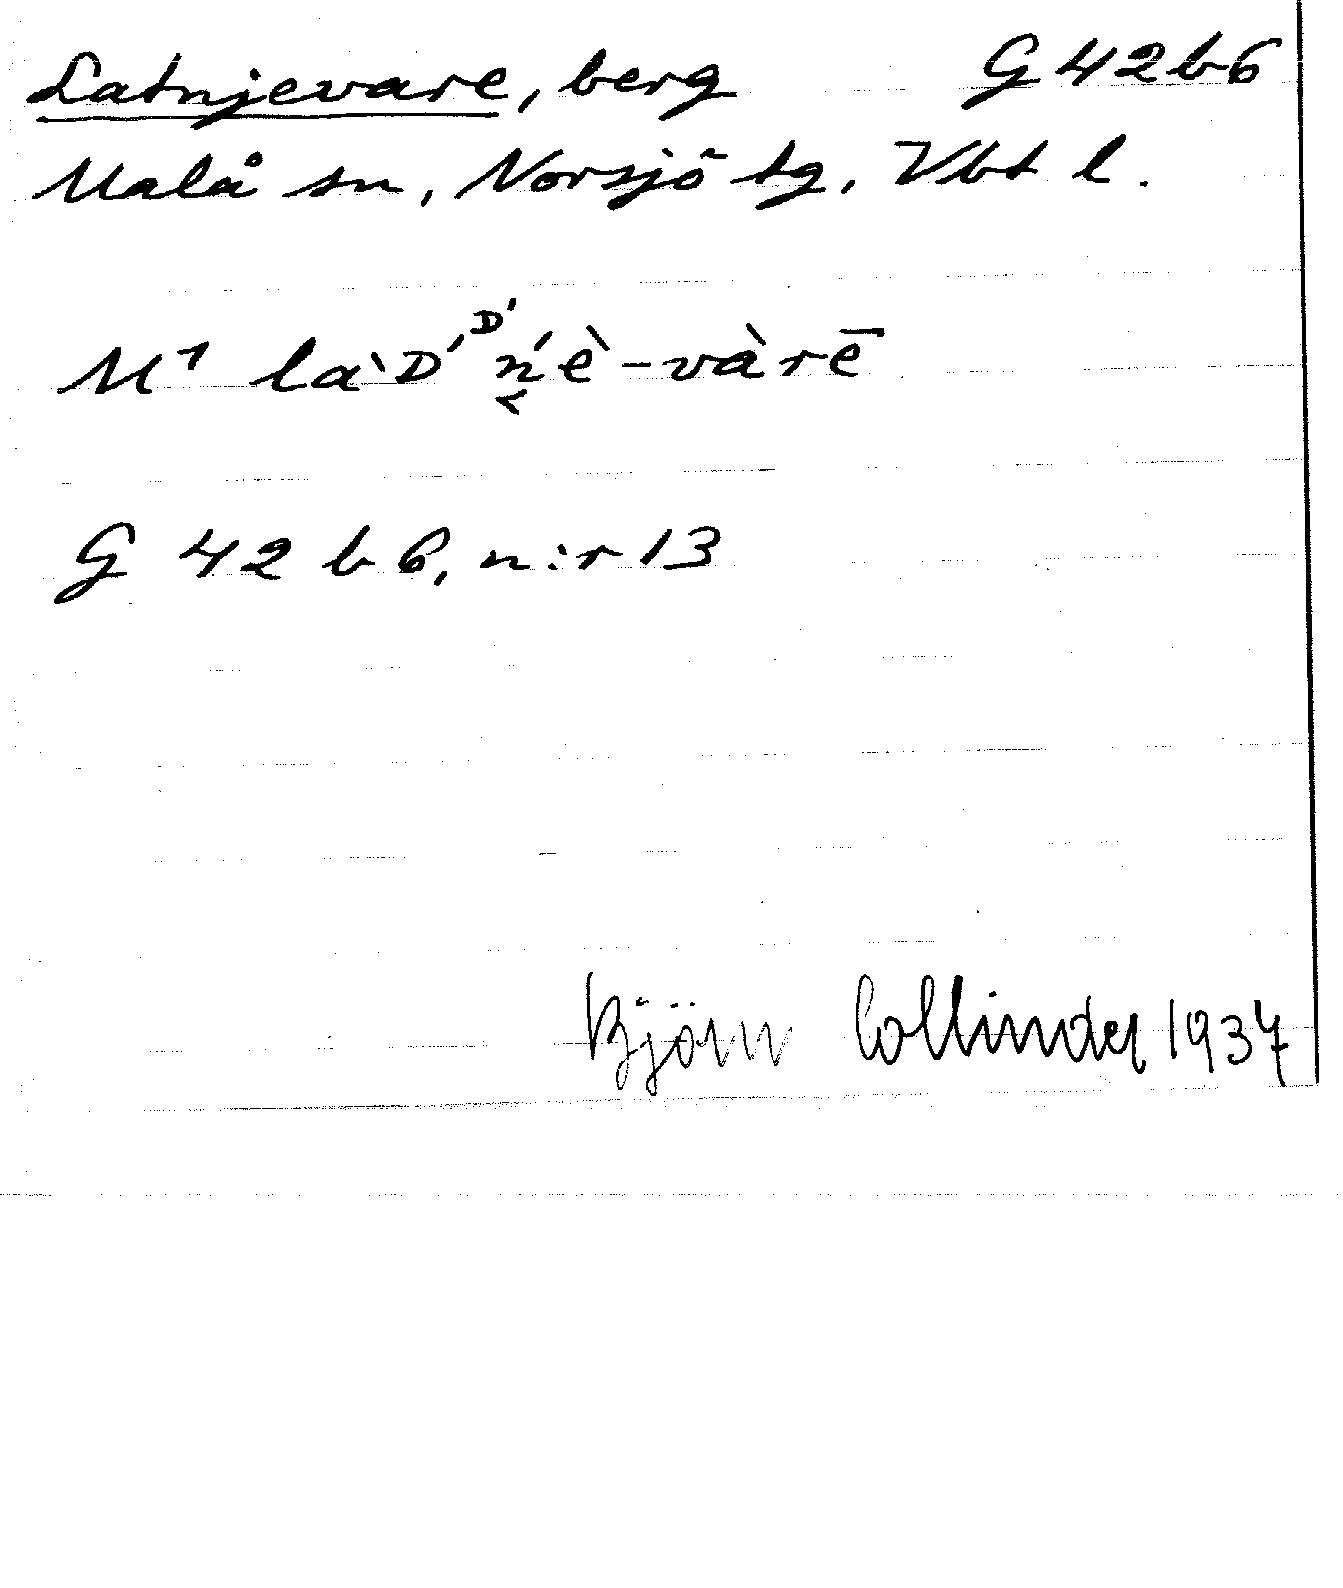 Latnjevare, berg G 42b6
Malå sn, Norsjö tg, Vbt l.
M¹ la`D´ᴰ´ń̬è-vàrē
G 42 b 6, n:r 13
Björn Collinder 1937